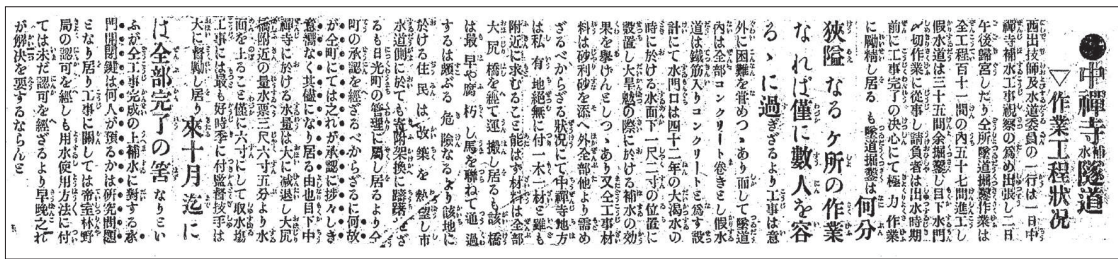 ●中禪寺補水隧道
▽作業工程狀況
西出技師及水道委員の一行は一日中
禪寺補水工事視察の爲め出張し二日
午後歸宮したり仝所隧道掘鑿作業は
全工程百十一間の内五十七間進工し
假水道は二十五間余掘鑿し目下水門
〆切作業に從事し請負者は出水時期
前に工事完了の決心にて極力作業
に勵精し居るも隧道掘鑿は何分
狹隘なるヶ所の作業
なれば僅に數人を容
るゝに過ぎざるより工事は意
外に困難を甞めつゝあり而して隧道
内は全部コンクリート卷きとし假水
道は鐵筋入りコンクリートと爲す設
計にて水門口は四十二年の大渇水の
時に於ける水面下一尺二寸の位置に
設置し大旱魃の際に於ける補水の効
果を擧けんとしつゝあり又仝工事材
料は砂利砂を添へ外全部他より需め
ざるべからざる狀況にて中禪寺地方
は私有地絶無に付一木一材と雖も
附近に求むること能はず材料は全部
大尻橋を經て運搬し居るも該橋
は最早や腐朽し馬を聯ねて通過
するは頗る危險なるより該地に
於ける住民は改築を熱望し市
水道側に於ても寄附架換に躊躇せざ
るも日光町の管理に屬し居るより仝
町の承認を經ざるべからざるに何故
か仝町にては之れが承認に捗々しき
意嚮なく其儘になり居る由也因に中
禪寺に於ける水量は大に減退し大尻
橋附近の量水票三尺六寸五分より水
面を上ること僅に八寸にして取水塲
工事には最も好時季に付監督技手は
大に督勵し居り來十月迄に
は全部完了の筈なりとい
ふが仝工事完成の上補水に對する水
門開閉は何人が預るかは研究問題
となり居り工事に關しては帝室林野
局の認可を經しも用水使用方法に付
ては未だ認可を經ざるより早晩之れ
が解決を要するならんと